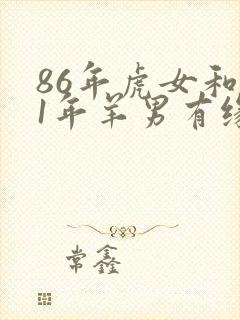 86年虎女和
1年羊男有缘
常鑫